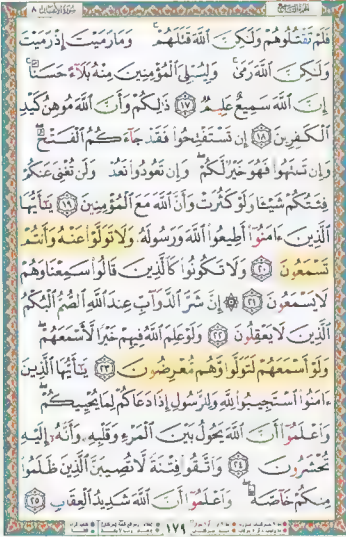 الجزء التاسع سورة الأنفال ٨
فَلَمْ تَقْتُلُوهُمْ وَلَٰكِنَّ ٱللَّهَ قَتَلَهُمْ ۚ وَمَا رَمَيْتَ إِذْ رَمَيْتَ
وَلَٰكِنَّ ٱللَّهَ رَمَىٰ ۚ وَلِيُبْلِىَ ٱلْمُؤْمِنِينَ مِنْهُ بَلَآءً حَسَنًا ۚ
إِنَّ ٱللَّهَ سَمِيعٌ عَلِيمٌ ١٧ ذَٰلِكُمْ وَأَنَّ ٱللَّهَ مُوهِنُ كَيْدِ
ٱلْكَٰفِرِينَ ١٨ إِن تَسْتَفْتِحُوا۟ فَقَدْ جَآءَكُمُ ٱلْفَتْحُ ۖ
وَإِن تَنتَهُوا۟ فَهُوَ خَيْرٌ لَّكُمْ ۖ وَإِن تَعُودُوا۟ نَعُدْ وَلَن تُغْنِىَ عَنكُمْ
فِئَتُكُمْ شَيْـًٔا وَلَوْ كَثُرَتْ وَأَنَّ ٱللَّهَ مَعَ ٱلْمُؤْمِنِينَ ١٩ يَٰٓأَيُّهَا
ٱلَّذِينَ ءَامَنُوٓا۟ أَطِيعُوا۟ ٱللَّهَ وَرَسُولَهُۥ وَلَا تَوَلَّوْا۟ عَنْهُ وَأَنتُمْ
تَسْمَعُونَ ٢٠ وَلَا تَكُونُوا۟ كَٱلَّذِينَ قَالُوا۟ سَمِعْنَا وَهُمْ
لَا يَسْمَعُونَ ٢١ ۞ إِنَّ شَرَّ ٱلدَّوَآبِّ عِندَ ٱللَّهِ ٱلصُّمُّ ٱلْبُكْمُ
ٱلَّذِينَ لَا يَعْقِلُونَ ٢٢ وَلَوْ عَلِمَ ٱللَّهُ فِيهِمْ خَيْرًا لَّأَسْمَعَهُمْ ۖ
وَلَوْ أَسْمَعَهُمْ لَتَوَلَّوا۟ وَّهُم مُّعْرِضُونَ ٢٣ يَٰٓأَيُّهَا ٱلَّذِينَ
ءَامَنُوا۟ ٱسْتَجِيبُوا۟ لِلَّهِ وَلِلرَّسُولِ إِذَا دَعَاكُمْ لِمَا يُحْيِيكُمْ ۖ
وَٱعْلَمُوٓا۟ أَنَّ ٱللَّهَ يَحُولُ بَيْنَ ٱلْمَرْءِ وَقَلْبِهِۦ وَأَنَّهُۥٓ إِلَيْهِ
تُحْشَرُونَ ٢٤ وَٱتَّقُوا۟ فِتْنَةً لَّا تُصِيبَنَّ ٱلَّذِينَ ظَلَمُوا۟
مِنكُمْ خَآصَّةً ۖ وَٱعْلَمُوٓا۟ أَنَّ ٱللَّهَ شَدِيدُ ٱلْعِقَابِ ٢٥
١٧٩